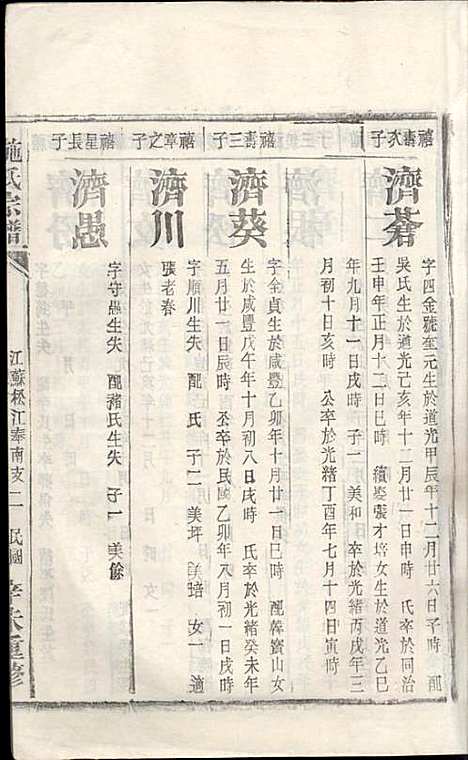 禧壽次子
濟蒼
字四金號奎元生於道光甲辰年十二月廿六日子時 配
吳氏生於道光己亥年十二月廿一日申時 氏卒於同治
壬申年正月十二日巳時 續娶張才培女生於道光乙巳
年九月十一日戌時 子一 美和 卒於光緒丙戌年三
月初十日亥時 公卒於光緒丁酉年七月十四日寅時
禧壽三子
濟葵
字金貞生於咸豐乙卯年十月廿一日巳時 配韓寶山女
生於咸豐戊午年十月初八日戌時 氏卒於光緒癸未年
五月廿一日辰時 公卒於民國乙卯年八月初一日戌時
禧章之子
濟川
字順川生失 配 氏 子二 美坪 美琣 女一 適
張老春
禧星長子
濟愚
字守愚生失 配褚氏生失 子一 美餘
施氏宗譜
江蘇松江奉南支二
民國 重修